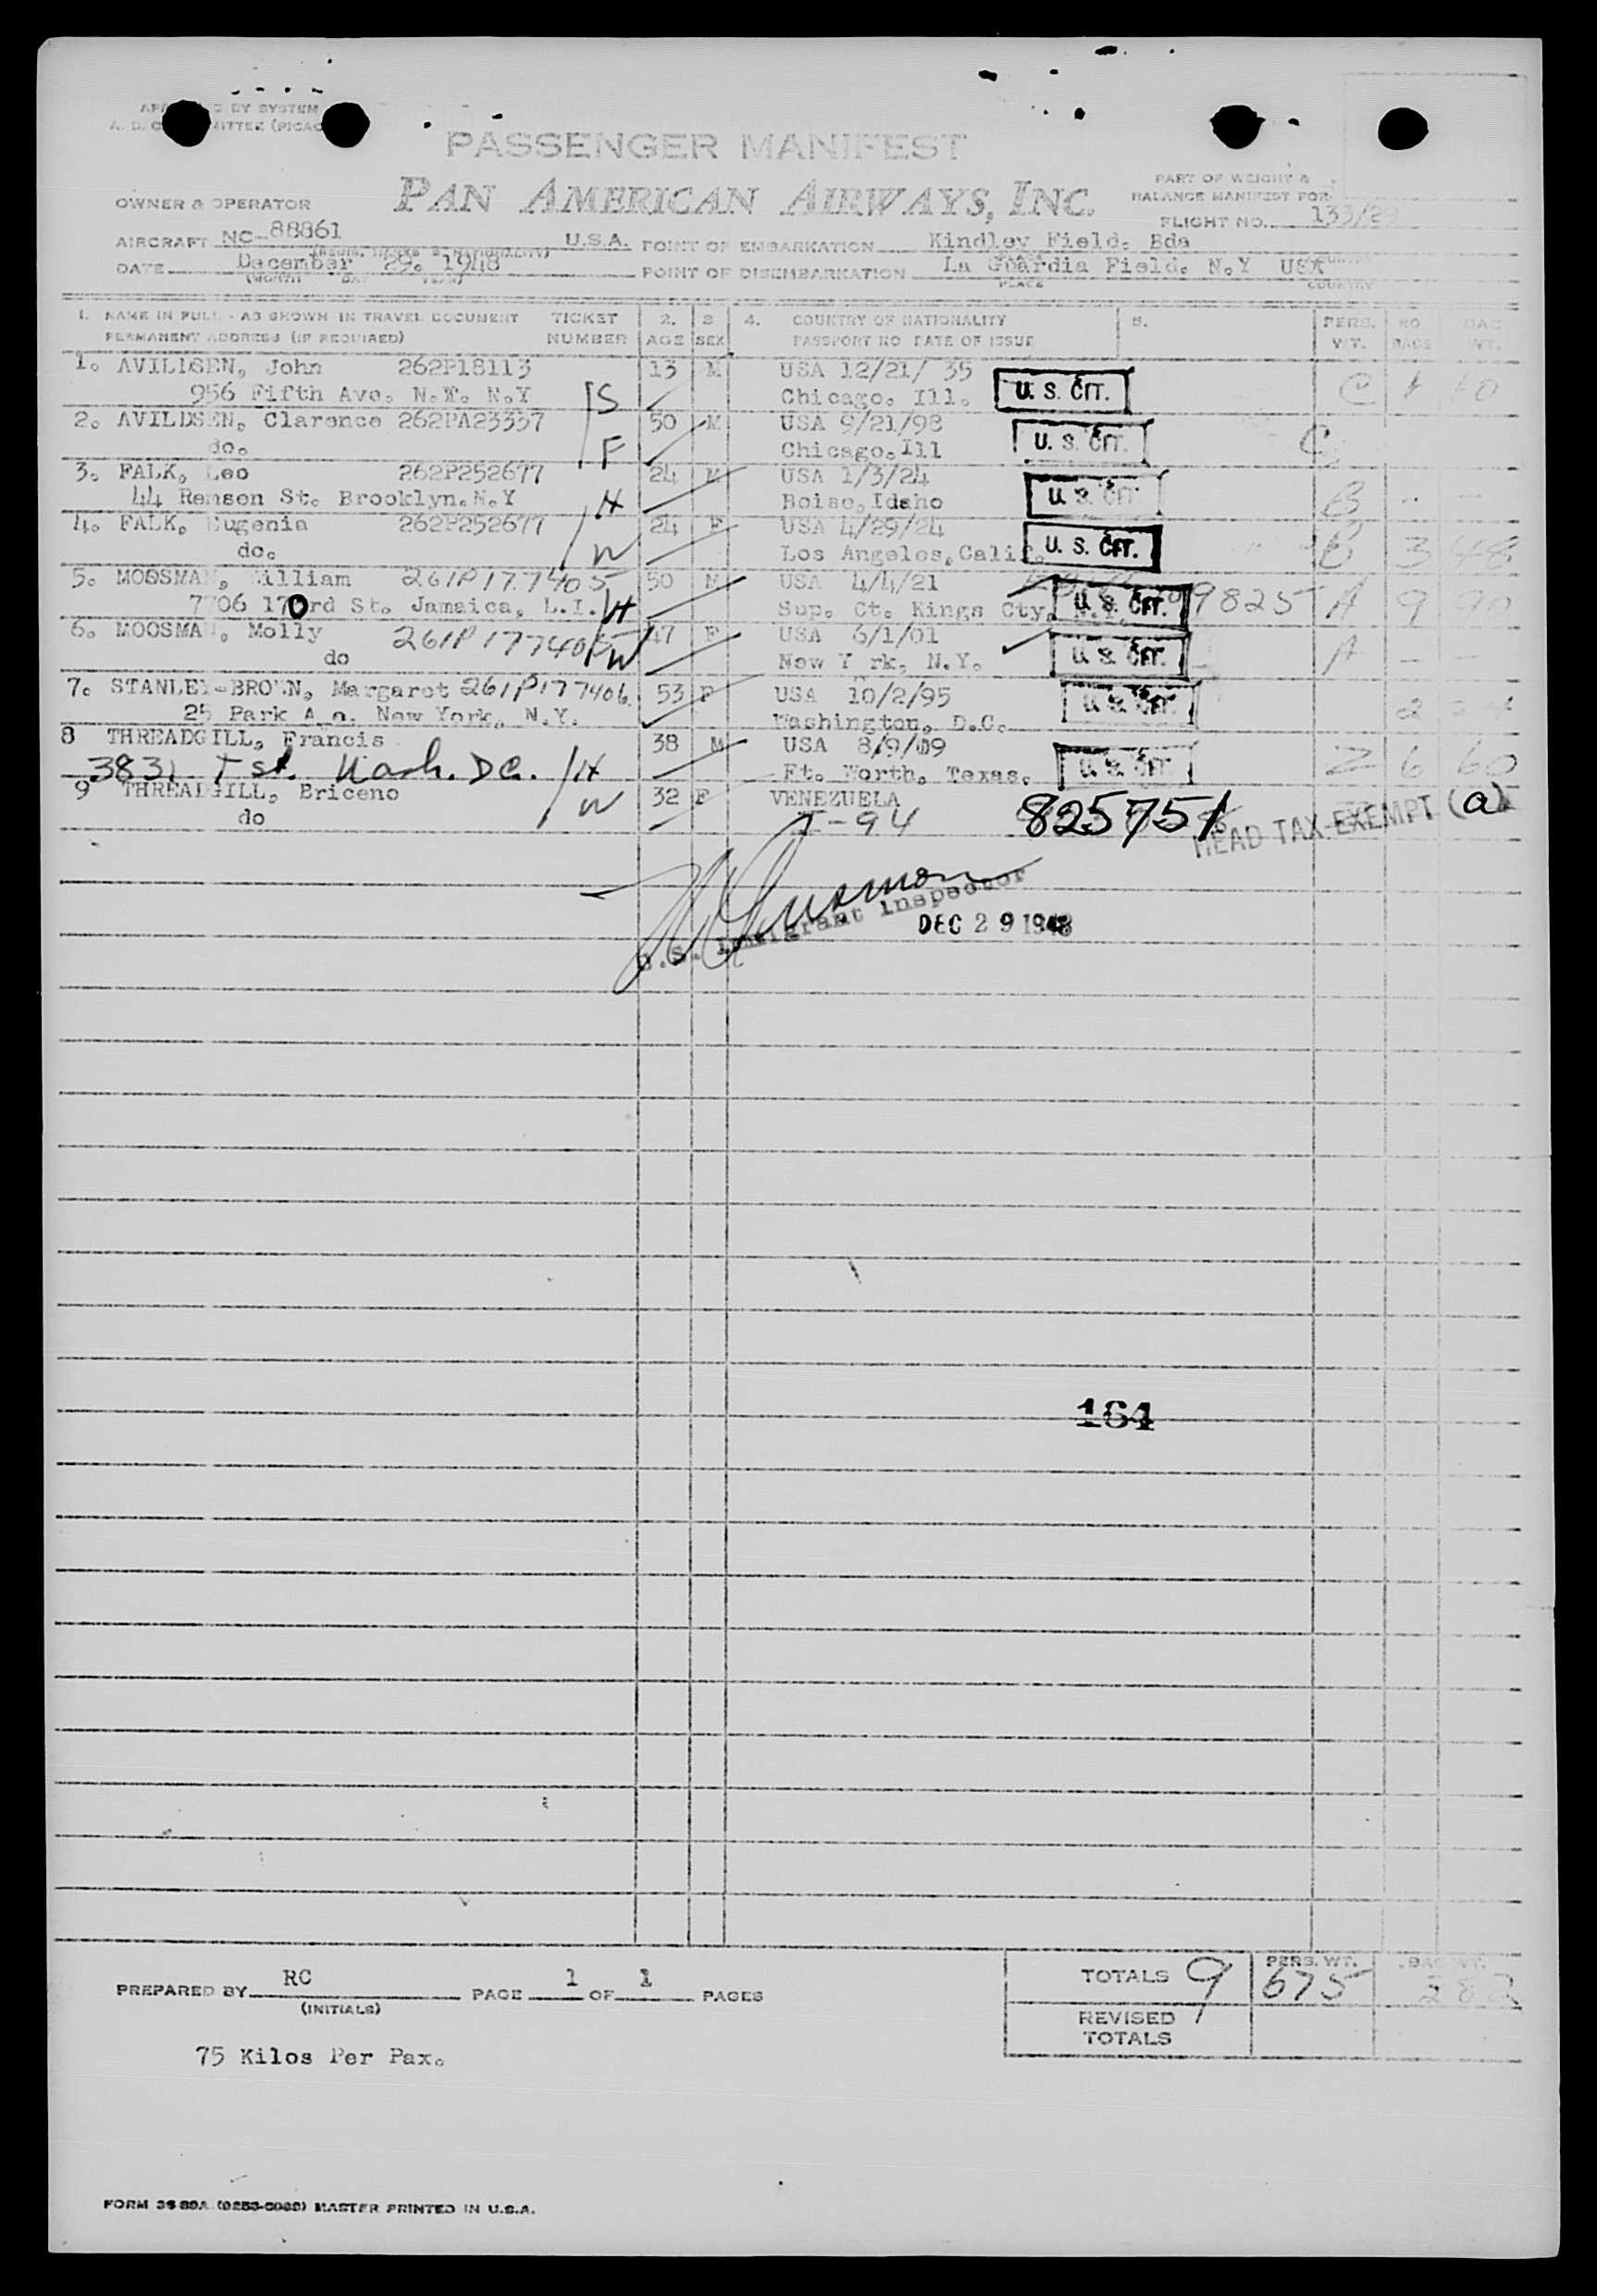 PASSENGER MANIFEST
PAN AMERICAN AIRWAYS, INC.
PART OF WEIGHT &
BALANCE MANIFEST FOR
OWNER & OPERATOR
FLIGHT NO. 133/29
AIRCRAFT NC 88861 U.S.A. POINT OF EMBARKATION Kindley Field. Bda
DATE December 29. 1948 POINT OF DISEMBARKATION La Guardia Field. N.Y USA
(MONTH DAY YEAR) PLACE COUNTRY
1. NAME IN FULL - AS SHOWN IN TRAVEL DOCUMENT TICKET 2. 3 4. COUNTRY OF NATIONALITY 5. PERS. NO. BAG
PERMANENT ADDRESS (IF REQUIRED) NUMBER AGE SEX PASSPORT NO DATE OF ISSUE WT. BAGS WT.
1. AVILDSEN, John 262P18113 13 M USA 12/21/ 35
956 Fifth Ave. N.Y. N.Y S Chicago. Ill. U. S. CIT. C
2. AVILDSEN, Clarence 262PA23337 50 M USA 9/21/98
do. F Chicago.Ill U. S. CIT. C
3. FALK, Leo 262P252677 24 M USA 1/3/24
44 Remsen St. Brooklyn.N.Y H Boise,Idaho U. S. CIT. B - —
4. FALK, Eugenia 262P252677 24 F USA 4/29/24
do. W Los Angeles,Calif. U. S. CIT. B 3 48
5. MOOSMAN, William 261P177405 50 M USA 4/4/21
7706 170rd St. Jamaica, L.I. H Sup. Ct. Kings Cty. N.Y. U. S. CIT. 9825 A 9 90
6. MOOSMAN, Molly 261P177405 47 F USA 6/1/01
do W New Y rk, N.Y. U. S. CIT. A — —
7. STANLEY-BROWN, Margaret 261P177406 53 F USA 10/2/95
25 Park A e. New York, N.Y. Washington, D.C. U. S. CIT. 2 24
8 THREADGILL, Francis 38 M USA 8/9/09
3831 T st. Wash. DC. H Ft. Worth, Texas. U. S. CIT. 6 60
9 THREADGILL, Briceno 32 F VENEZUELA
do W I-94 825751 HEAD TAX EXEMPT (a)
U.S. Immigrant Inspector
DEC 29 1948
164
PREPARED BY RC PAGE 1 OF 1 PAGES
(INITIALS)
TOTALS 9 PERS. WT. 675 BAG WT. 282
REVISED
TOTALS
75 Kilos Per Pax.
MASTER PRINTED IN U.S.A.